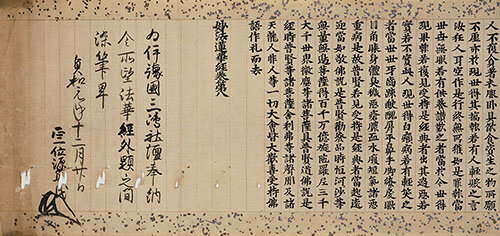 人不復貪著衣服臥具飲食資生之物所願
不虛亦於現世得其福報若有人輕毀之言
汝狂人耳空作是行終無所獲如是罪報當
世世無眼若有供養讚歎之者當於今世得
現果報若復見受持是經者出其過惡若
實若不實此人現世得白癩病若有輕笑之
者當世世牙齒疎缺醜脣平鼻手脚繚戾眼
目角睞身體臭穢惡瘡膿血水腹短氣諸惡
重病是故普賢若見受持是經典者當起遠
迎當如敬佛說是普賢勸發品時恒河沙等
無量無邊菩薩得百千萬億旋陀羅尼三千
大千世界微塵等諸菩薩具普賢道佛說是
經時普賢等諸菩薩舍利弗等諸聲聞及諸
天龍人非人等一切大會皆大歡喜受持佛
語作禮而去
妙法蓮華經卷第八
為伊豫國三嶋社壇奉納
令所望法華經外題之間
染筆畢
貞和元年十二月廿日
位源